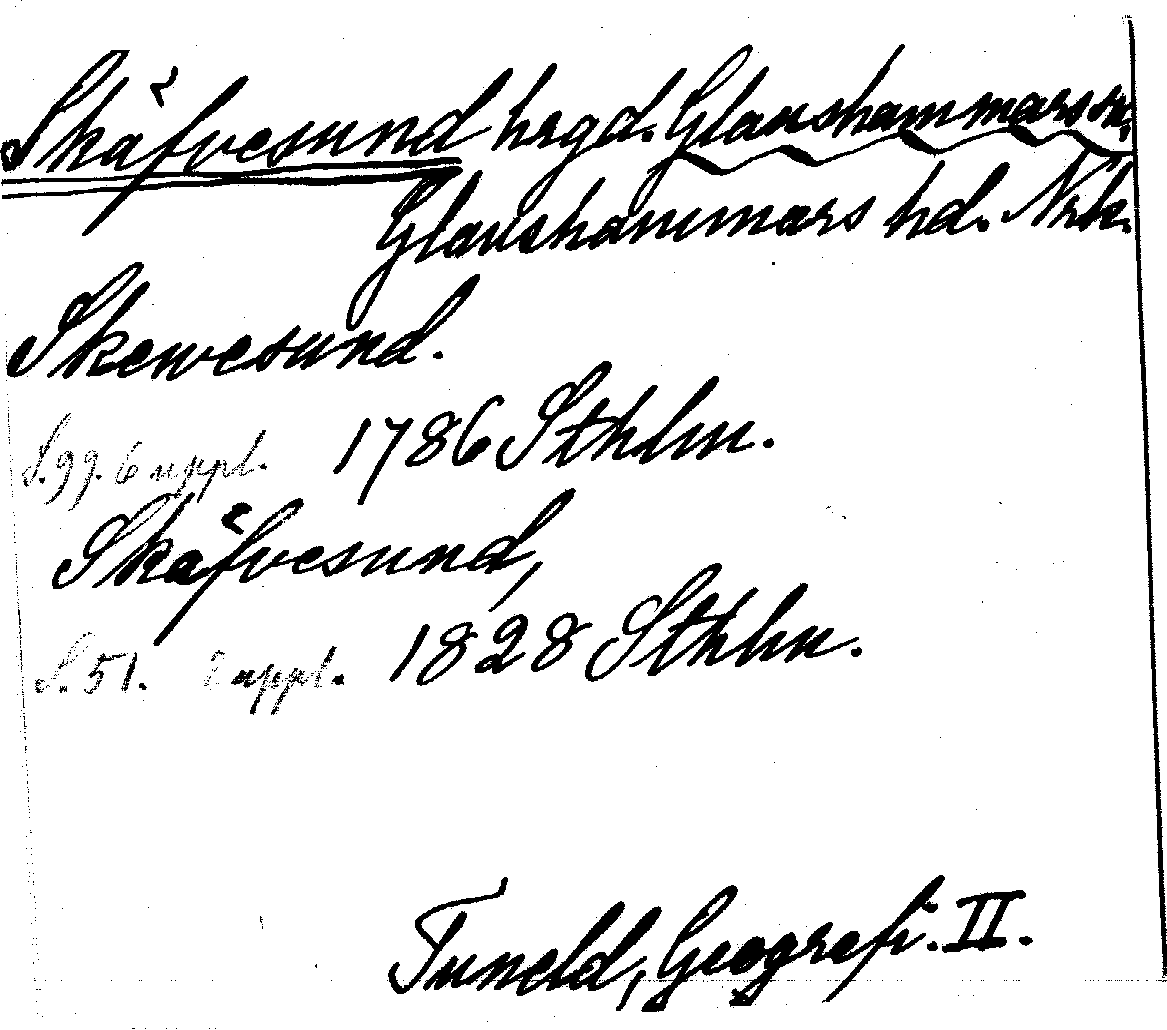 Skäfvesund hrgd. Glanshammars sn.
Glanshammars hd. Nrk.
Skewesund.
S. 99. 6 uppl. 1786 Sthlm.
Skäfvesund,
S. 51. uppl. 1828 Sthlm.
Tuneld, Geografi. II.